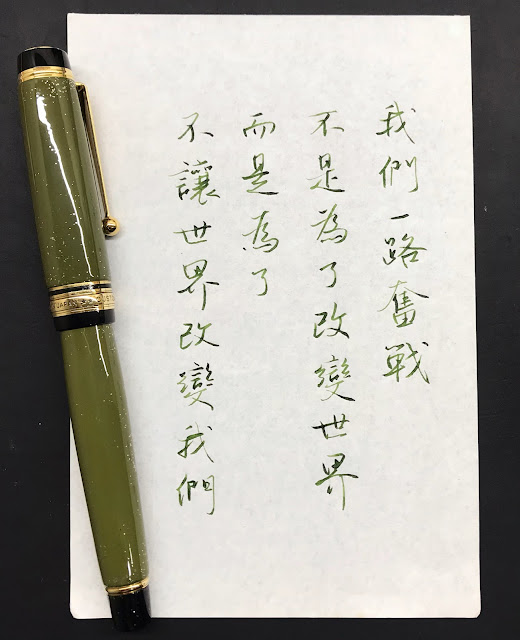 我們一路奮戰
不是為了改變世界
而是為了
不讓世界改變我們